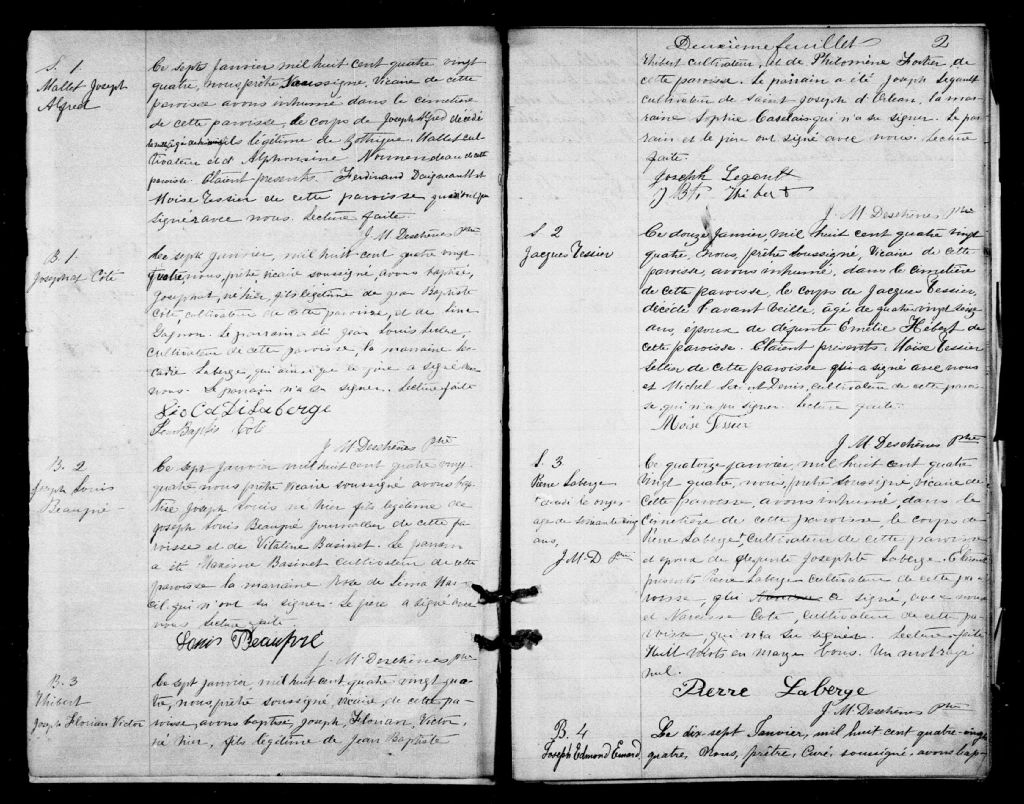 S. 1
Mallet Joseph
Alfred
Ce sept Janvier mil huit cent quatre vingt
quatre, nous prêtre soussigné, Vicaire de cette
paroisse avons inhumé dans le cimetière
de cette paroisse, le corps de Joseph Alfred décédé
légitime de Gothique Mallet cul-
tivateur et d'Alphonsine Normendeau de cette
paroisse. Etaient présents Ferdinand Daigneault et
Moise Tessier de cette paroisse qui
signer avec nous. Lecture faite.
J. M Deschênes Ptre
B. 1
Josephat Coté
Ce sept janvier, mil huit cent quatre vingt
quatre, nous, prêtre, vicaire soussigné, avons baptisé,
Josephat, né hier, fils légitime de Jean Baptiste
Coté, cultivateur de cette paroisse, et de Line
Gagnon. Le parrain a été Jean Louis
cultivateur de cette paroisse, la marraine Léo-
cadie Laberge, qui ainsi que le père a signé avec
nous. Le parrain n'a su signer. Lecture faite
Léocadi Laberge
Jean Baptis Coté
J. M Deschênes Ptre
B. 2
Joseph Louis
Beaupré
Ce sept Janvier mil huit cent quatre ving
quatre nous prêtre Vicaire soussigné avons bap-
tisé Joseph Louis né hier fils légitime de
Joseph Louis Beaupré journallier de cette pa-
roisse et de Vitaline Basinet. Le parrain
a été Maxime Basinet cultivateur de cette
paroisse la marraine Rose de Lima
qui n'ont su signer. Le père a signé avec
nous Lecture faite
Louis Beaupré
J. M. Deschênes ptre
B. 3
Thibert
Joseph Florian Victor
Ce sept janvier, mil huit cent quatre vingt qua-
tre, nous prêtre soussigné, vicaire de cette pa-
roisse, avons baptisé, Joseph, Florian, Victor,
né hier, fils légitime de Jean Baptiste
Deuxième feuillet 2
Thibert cultivateur, et de Philomène Fortier de
cette paroisse. Le parrain a été Joseph Legault
cultivateur de Saint Joseph d'Orlean, la mar-
raine Sophie qui n'a su signer. Le par-
rain et le père ont signé avec nous. Lecture
faite.
Joseph Legault
J Bte Thibert
J. M Deschênes Ptre
S. 2
Jacques Tessier
Ce douze Janvier, mil huit cent quatre vingt
quatre, nous, prêtre soussigné, Vicaire de cette
paroisse, avons inhumé, dans le cimetière
de cette paroisse, le corps de Jacques Tessier,
décédé l'avant veille, âgé de quatre vingt seize
ans, époux de défunte Emélie Hébert de
cette paroisse. Etaient présents Moïse Tessier
sellier de cette paroisse qui a signé avec nous
et Michel St Denis, cultivateur de cette paroi-
sse, qui n'a pu signer. Lecture faite.
Moïse Tessier
J. M Deschênes Ptre
S. 3
Pierre Laberge
âgé de soixante
ans,
J. M. D Ptre
Ce quatorze janvier, mil huit cent quatre
vingt quatre, nous, prêtre soussigné, vicaire de
cette paroisse, avons inhumé, dans le
cimetière de cette paroisse le corps de
Pierre Laberge, cultivateur de cette paroisse
et époux de défunte Josephte Laberge. Etaient
présents Pierre Laberge cultivateur de cette pa-
roisse, qui a signé, avec nous
et Narcisse Coté, cultivateur de cette pa-
roisse, qui n'a su signer. Lecture faite
Huit mots en marge bons. Un mot rayé
nul.
Pierre Laberge
J. M Deschênes Ptre
B. 4
Joseph Edmond Emard
Le dix-sept Janvier, mil huit cent quatre-vingt
quatre, Nous, prêtre, Curé, soussigné, avons bap-